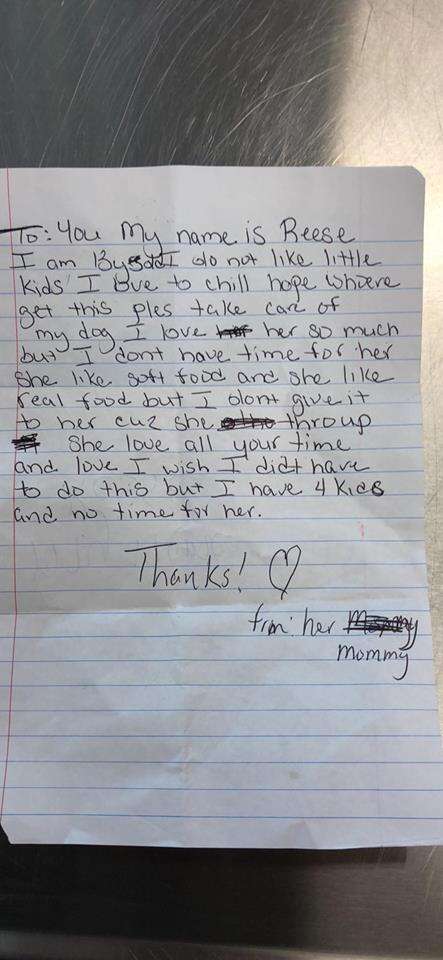 To: You My name is Reese
I am 13ysold I do not like little
kids I love to chill hope whoere
get this ples take car of
my dog I love her so much
but I dont have time for her
She like soft food and she like
real food but I dont give it
to her cuz she throup
She love all your time
and love I wish I didt have
to do this but I have 4 kids
and no time for her.
Thanks! ♡
frm her
mommy